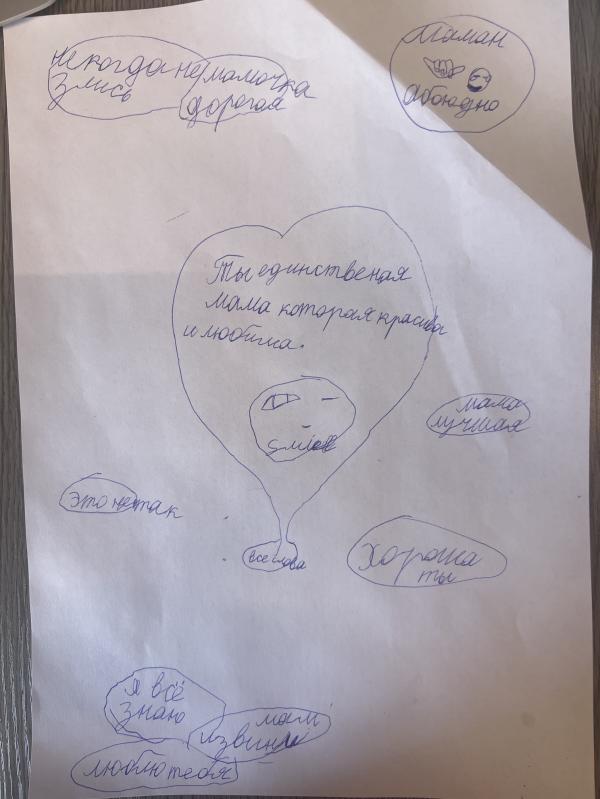 некогда не
злись
мамочка
дорогая
Маман
Обоюдно
Ты единственая
мама которая красива
и любима.
smile
мама
лучшая
это не так
все слова
Хороша
ты
я всё
знаю
мам
извини
люблю тебя